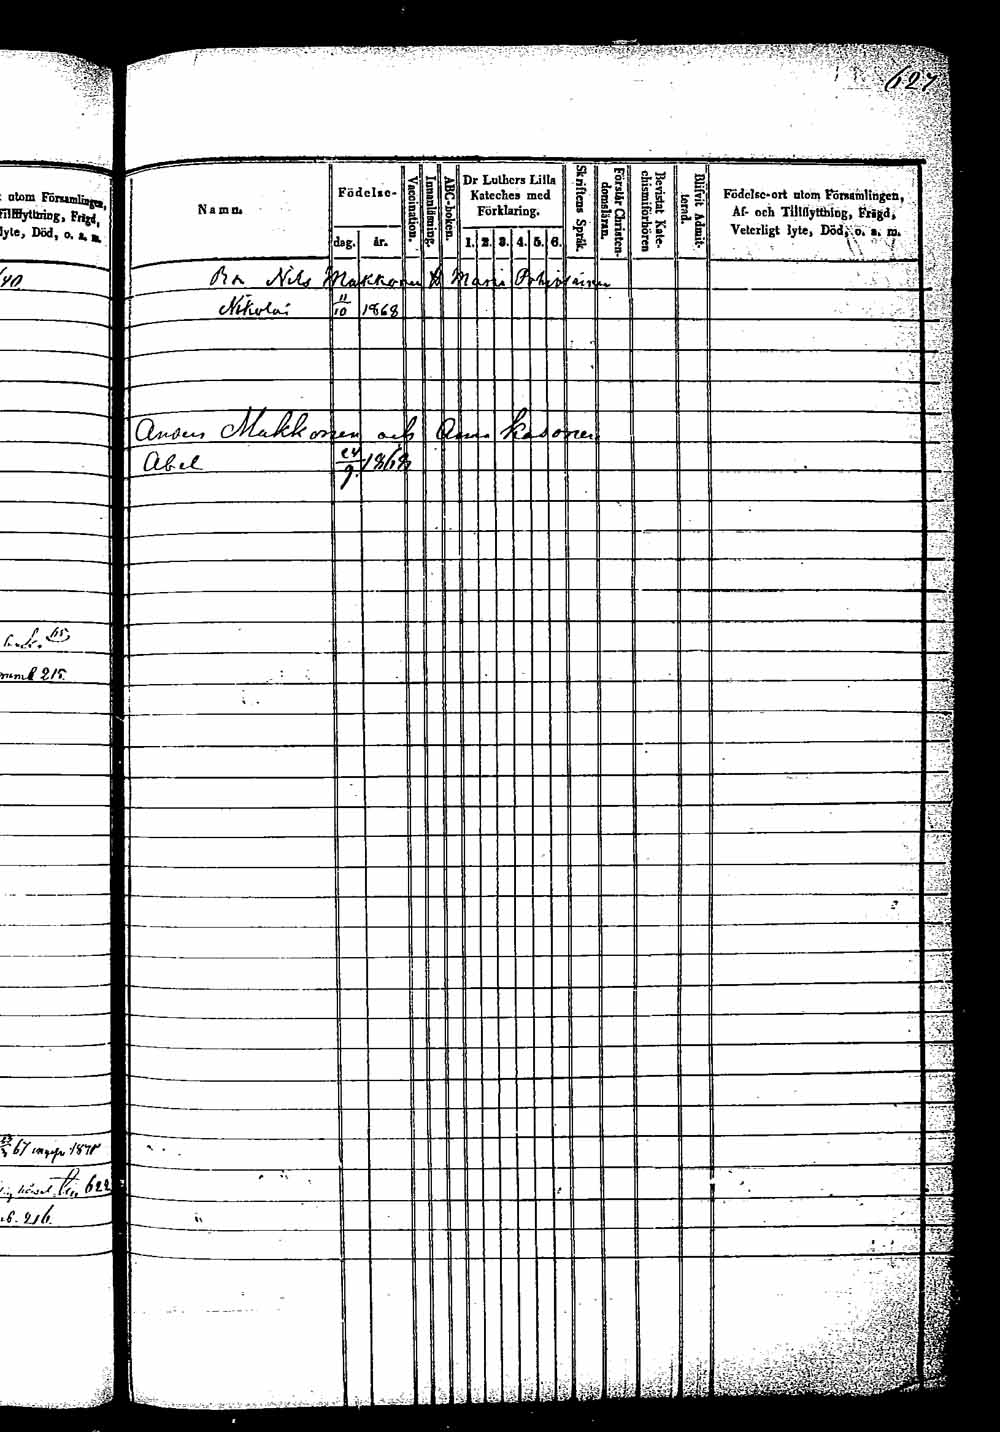 627
utom Församlingen,
Tillflyttning, Frägd,
lyte, Död, o. s. m.
Namn.
Födelse-
dag. år.
Vaccination.
Innanläsning.
ABC-boken.
Dr Luthers Lilla
Kateches med
Förklaring.
1. 2. 3. 4. 5. 6.
Skriftens Språk.
Förstår Christen-
domsläran.
Bevistat Kate-
chismiförhören
Blifvit Admit-
terad.
Födelse-ort utom Församlingen,
Af- och Tillflyttning, Frägd,
Veterligt lyte, Död, o. s. m.
Nils Makkonen H Maria
Nikolai 11/10 1868
Makkonen och Anna Kasonen
Abel 24/9. 1868
65
215.
67 1878
622
216.